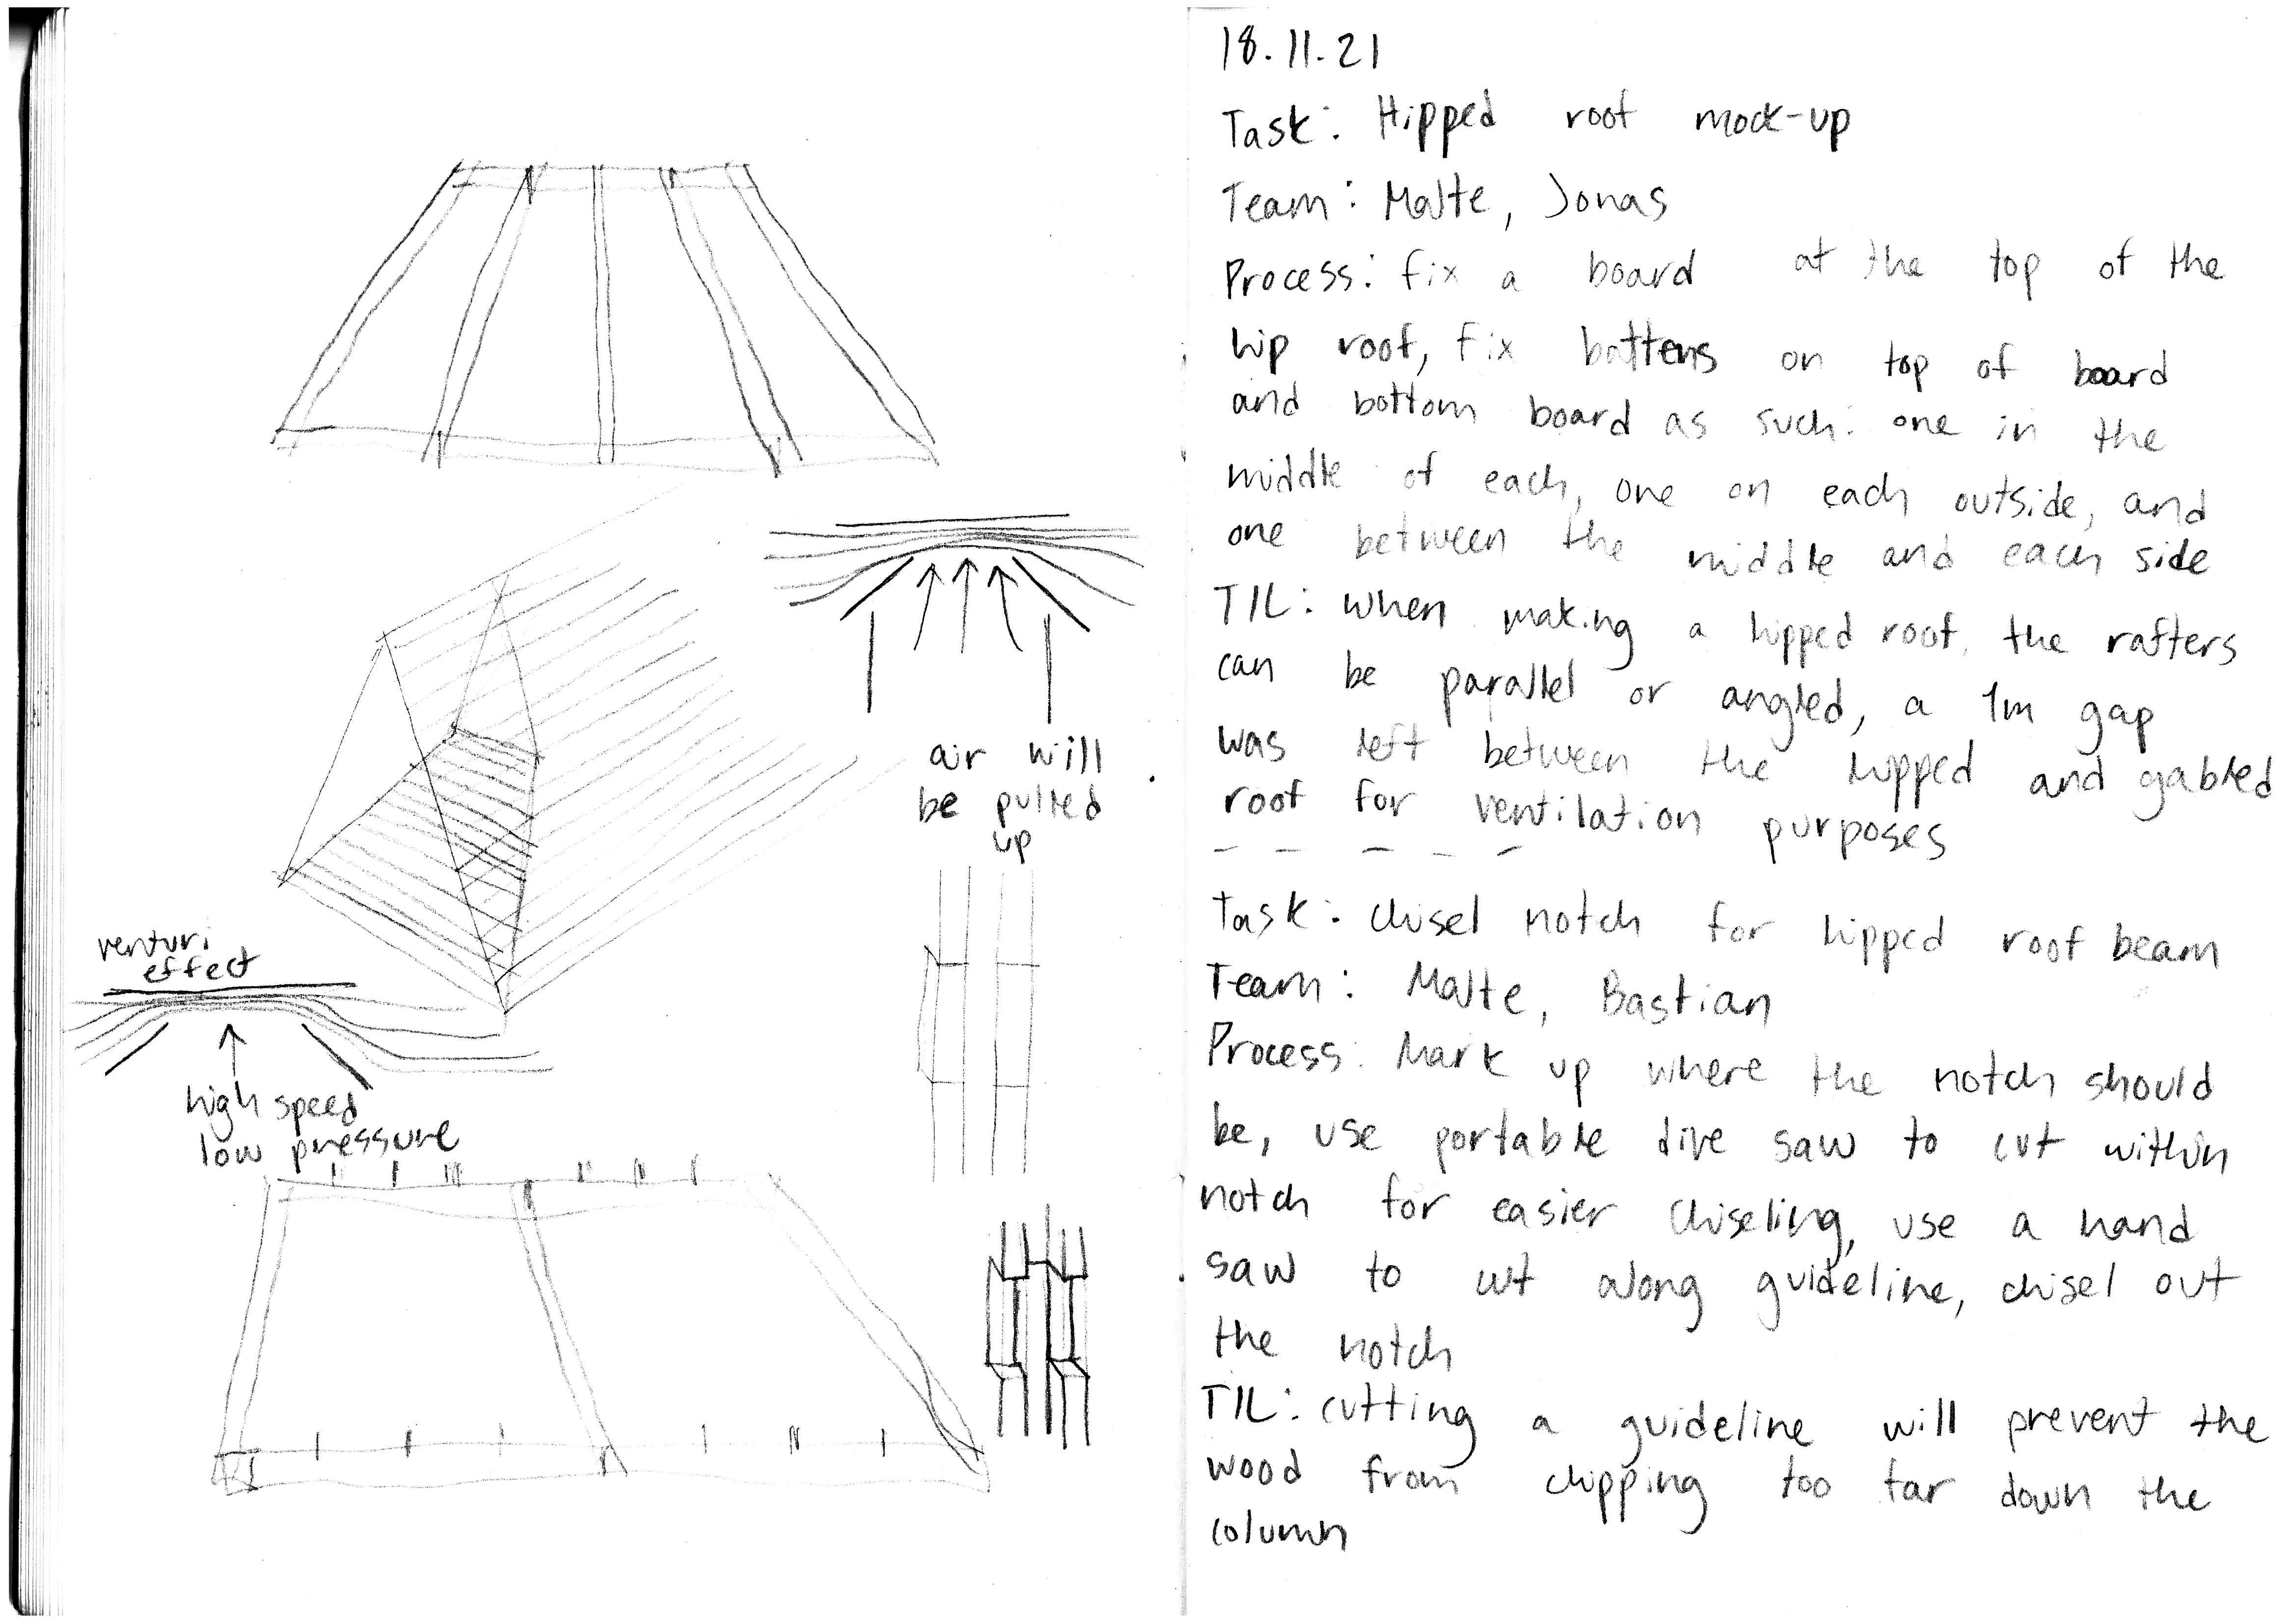 air will
be pulled
up
venturi
effect
high speed
low pressure
18.11.21
Task: Hipped roof mock-up
Team: Malte, Jonas
Process: fix a board at the top of the
hip roof, fix battens on top of board
and bottom board as such: one in the
middle of each, one on each outside, and
one between the middle and each side
TIL: when making a hipped roof, the rafters
can be parallel or angled, a 1m gap
was left between the hipped and gabled
roof for ventilation purposes
– – – – –
Task: chisel notch for hipped roof beam
Team: Malte, Bastian
Process: Mark up where the notch should
be, use portable dive saw to cut within
notch for easier chiseling, use a hand
saw to cut along guideline, chisel out
the notch
TIL: cutting a guideline will prevent the
wood from chipping too far down the
column